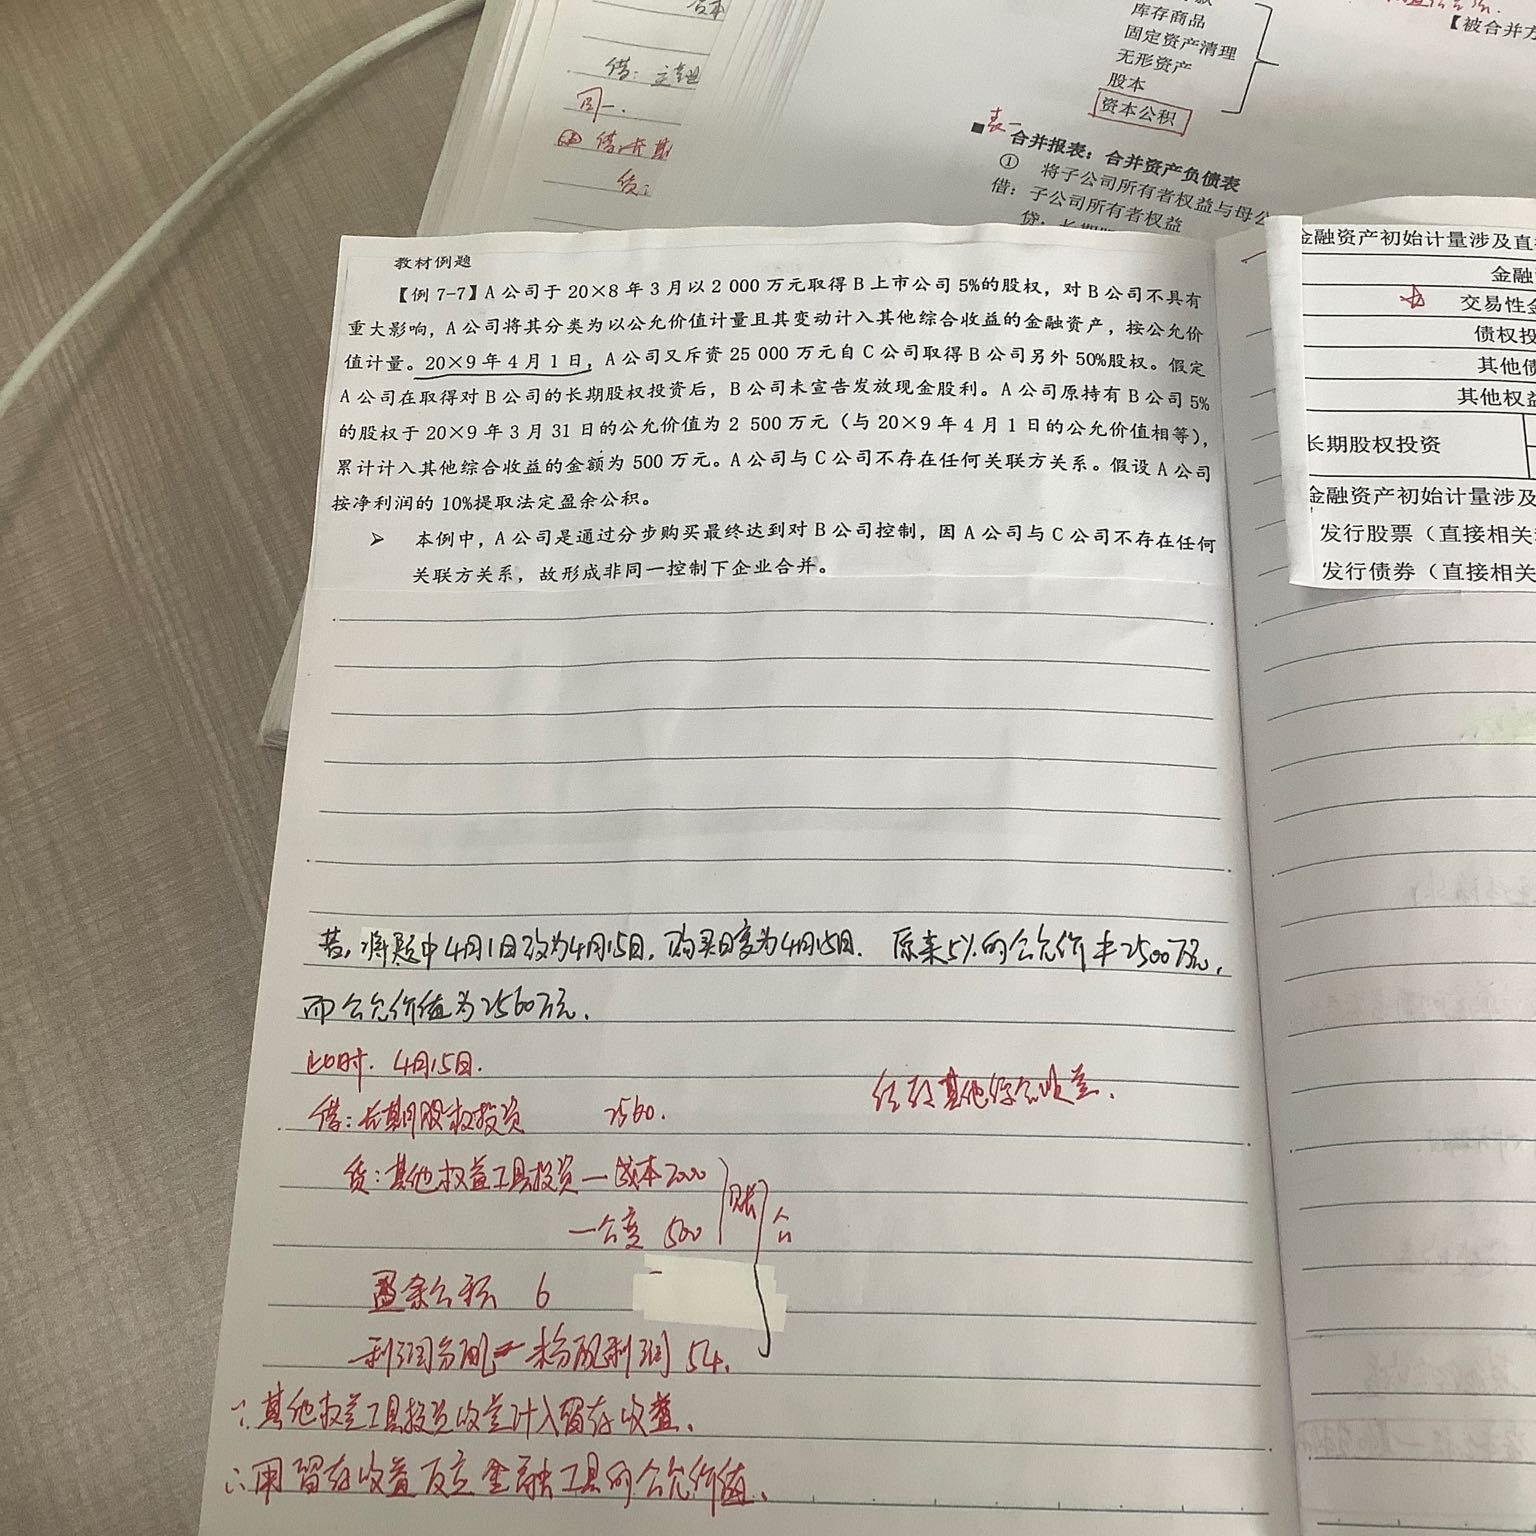 合本
借：
同一.
借：长期
贷：
库存商品
固定资产清理
无形资产
股本
资本公积
【被合并方
表一
■ 合并报表：合并资产负债表
① 将子公司所有者权益与母公
借：子公司所有者权益
贷：长期
教材例题
【例 7-7】A 公司于 20×8 年 3 月以 2 000 万元取得 B 上市公司 5%的股权，对 B 公司不具有
重大影响，A 公司将其分类为以公允价值计量且其变动计入其他综合收益的金融资产，按公允价
值计量。20×9 年 4 月 1 日，A 公司又斥资 25 000 万元自 C 公司取得 B 公司另外 50%股权。假定
A 公司在取得对 B 公司的长期股权投资后，B 公司未宣告发放现金股利。A 公司原持有 B 公司 5%
的股权于 20×9 年 3 月 31 日的公允价值为 2 500 万元（与 20×9 年 4 月 1 日的公允价值相等），
累计计入其他综合收益的金额为 500 万元。A 公司与 C 公司不存在任何关联方关系。假设 A 公司
按净利润的 10%提取法定盈余公积。
➢ 本例中，A 公司是通过分步购买最终达到对 B 公司控制，因 A 公司与 C 公司不存在任何
关联方关系，故形成非同一控制下企业合并。
金融资产初始计量涉及直接
金融
交易性金
债权投
其他债
其他权益
长期股权投资
金融资产初始计量涉及
发行股票（直接相关
发行债券（直接相关
若,将题中4月1日改为4月15日,购买日变为4月15日. 原来5%的公允价卡2500万元,
而公允价值为2560万元.
此时. 4月15日.
结转其他综合收益.
借：长期股权投资 2560.
贷：其他权益工具投资—成本2000
—公变 500
账
公
盈余公积 6
利润分配—未分配利润 54.
∵其他权益工具投资收益计入留存收益.
∴用留存收益反应金融工具的公允价值.